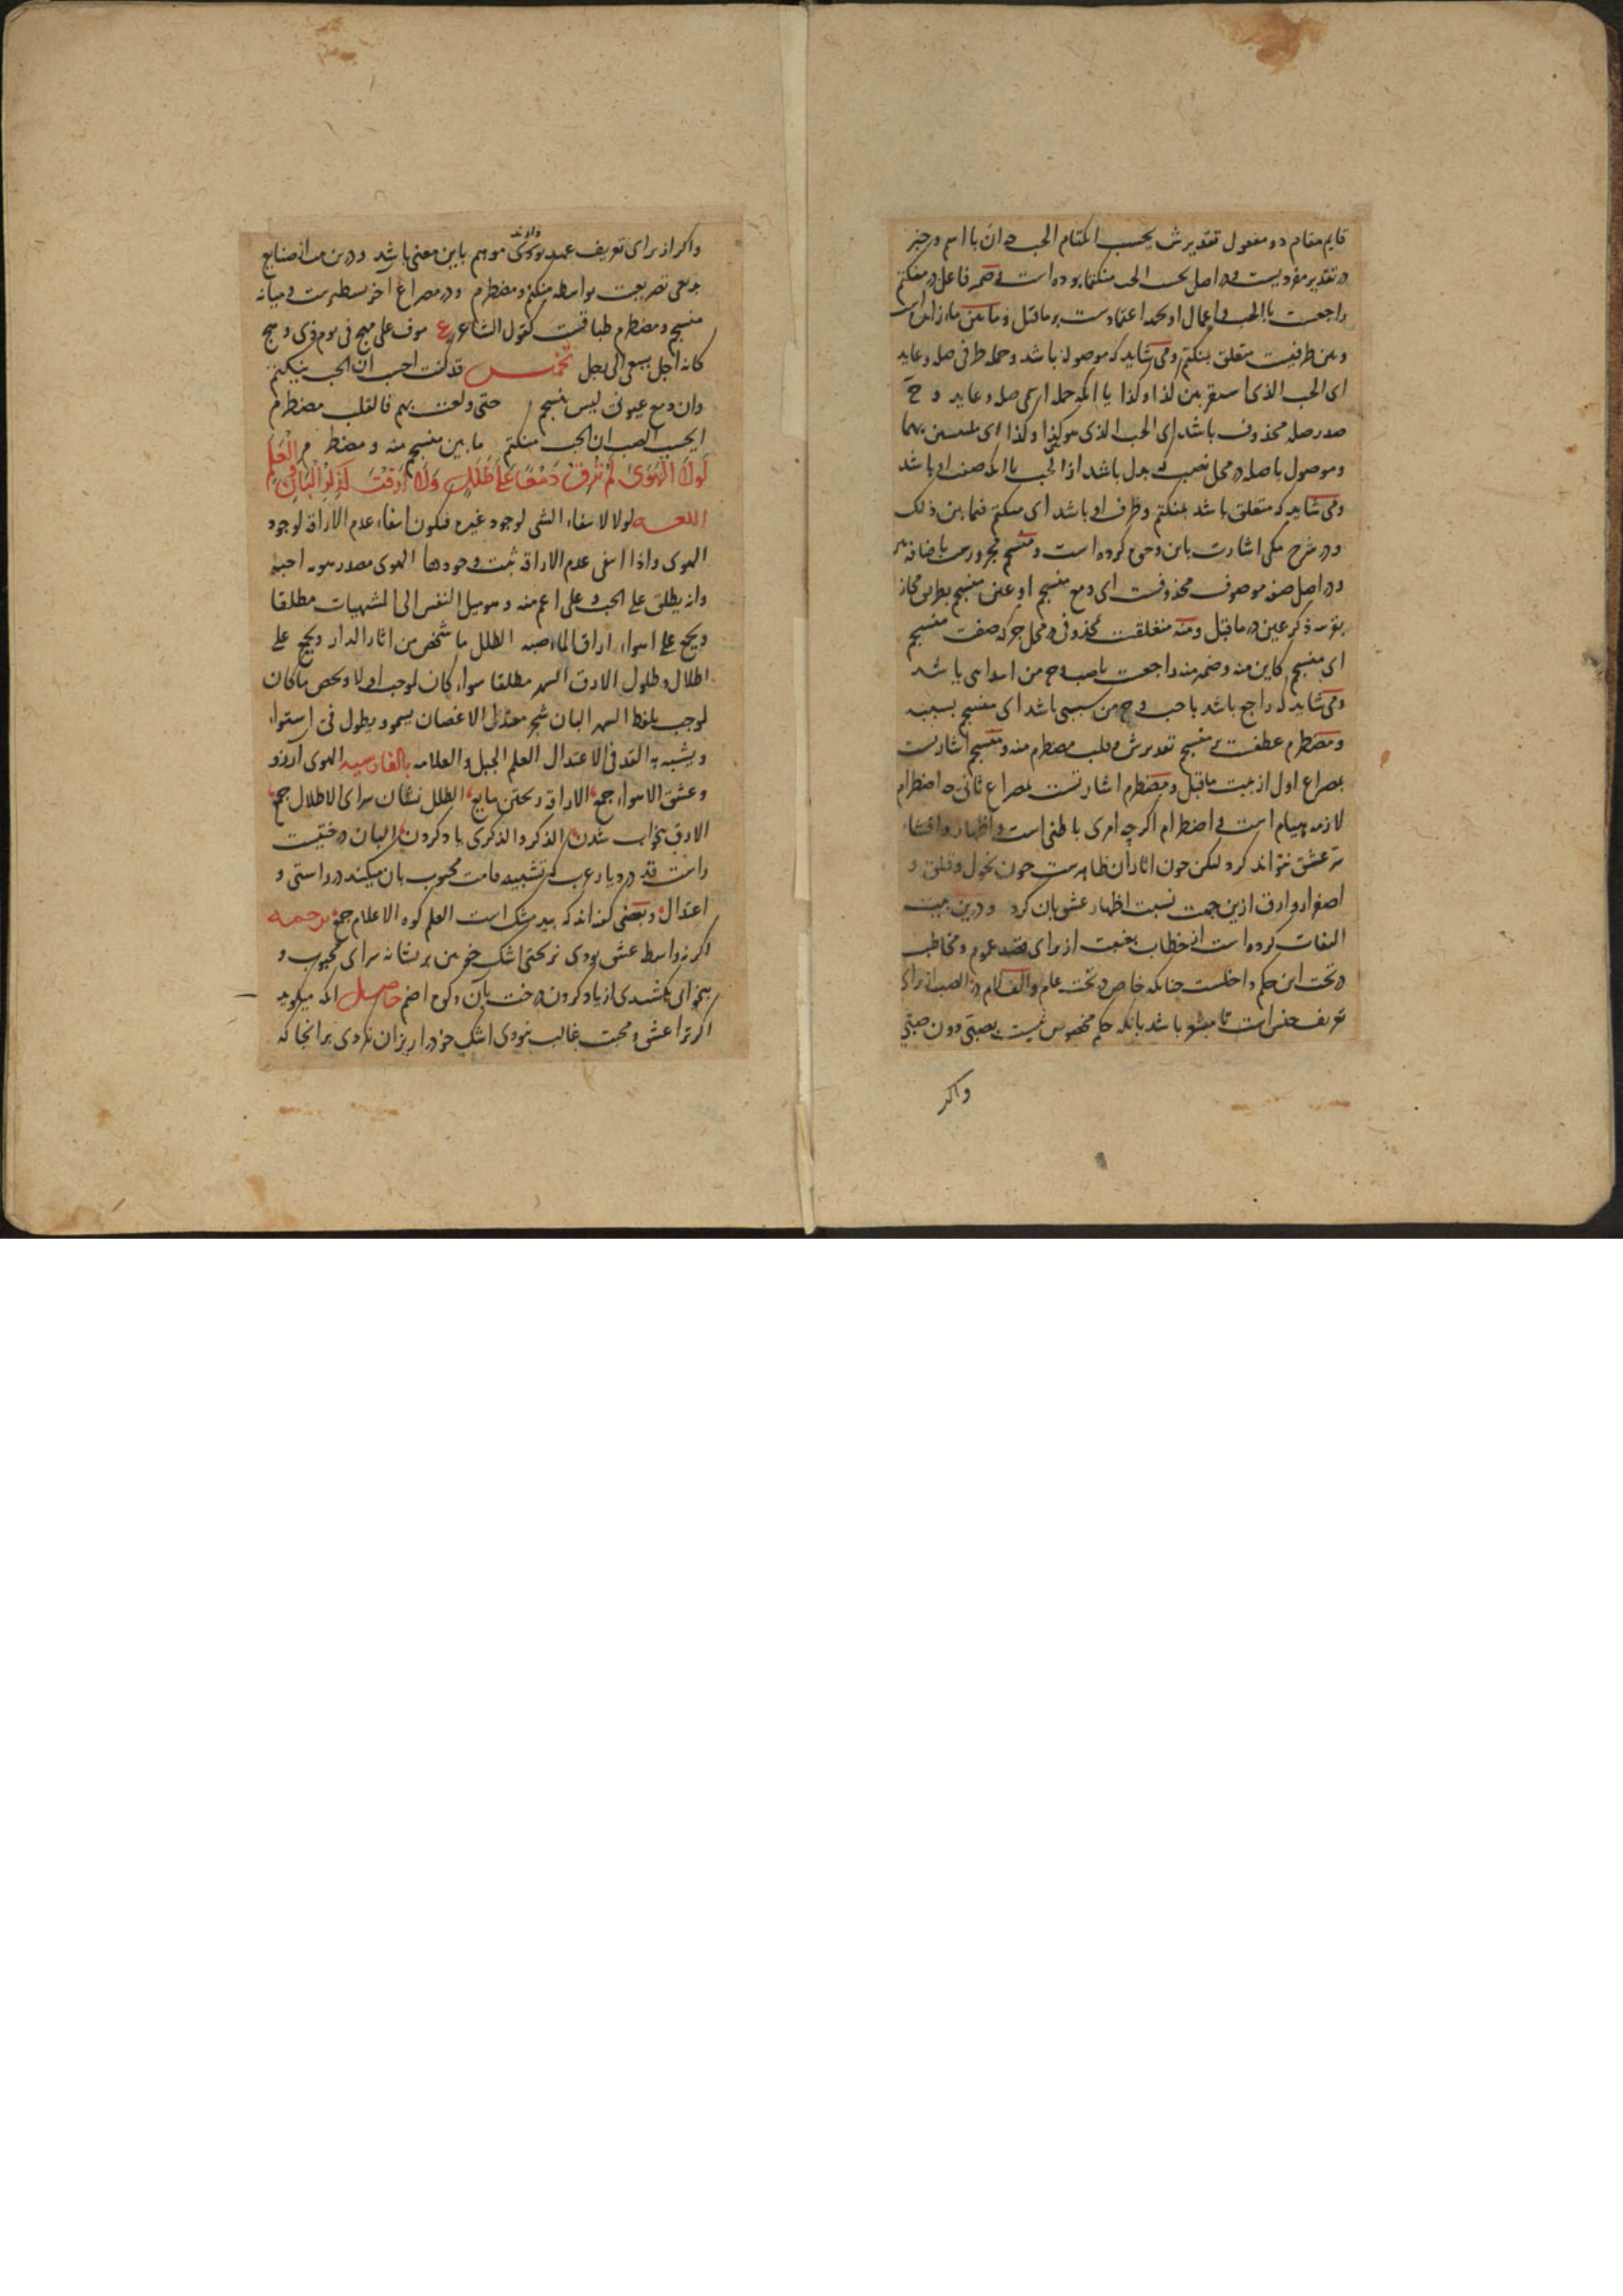 قایم مقام دو مفعول تقدیرش یحسب اکتتام الحب ان با اسم و خبر
در تقدیر مفردیست در اصل الحب منکتما بوده است ضمیر فاعل در منکتم
راجعست با الحب و اعمال او بجهة اعتمادست بر ما قبل و ما
و بین ظرفیت متعلق بمنکتم و می شاید که موصوله باشد و جمله ظرفی صله و عاید
ای الحب الذی استقر بین کذا و کذا یا آنکه جمله اسمی صله و عاید و ح
صدر صله محذوف باشد ای الحب الذی هو کذا و کذا ای بهما
و موصول با صله در محل نصب بدل باشد از الحب یا آنکه صفت او باشد
و می شاید که متعلق باشد بمنکتم و ظرف او باشد ای منکتم فیما بین ذلک
و در شرح مکی اشارت باین وجه کرده است و منسجم مجرورست باضافه بین
و در اصل صفه موصوف محذوفست ای دمع منسجم او عین منسجم بطریق مجاز
بقرینه ذکر عین در ما قبل و منه متعلقست بمحذوفی در محل جر که صفت منسجم
ای منسجم کاین منه و ضمیر منه راجعست باصب و ح من ابتدائی باشد
و می شاید که راجع باشد با حب و ح من سببی باشد ای منسجم بسببه
و مضطرم عطفست بر منسجم تقدیرش و قلب مضطرم منه و منسجم اشارتست
بمصراع اول از بیت ما قبل و مضطرم اشارتست بمصراع ثانی چه اضطرام
لازمه هیام است و اضطرام اگرچه امری باطنی است و اظهار و افشاء
سر عشق نتواند کرد لیکن چون اثار آن ظاهرست چون نحول و قلق و
اصفرار و ارق ازین جهت نسبت اظهار عشق بان کرد و درین بیت
التفات کرده است از خطاب بغیبت از برای قصد عموم و مخاطب
در تحت این حکم داخلست چنانکه خاص در تحت عام و الف لام در الصب از برای
تعریف جنس است تا مشعر باشد بانکه حکم مخصوص نیست بصبی دون صبی
واکر
واکر از برای تعریف عهد بودی موهم باین معنی باشد و درین بیت از صنایع
بدیعی تصریعست بواسطه منکتم و مضطرم و در مصراع اخر و میانه
منسجم و مضطرم طباقست کقول الشاعر ع موف علی مهج فی یوم ذی رهج
کانه اجل یسعی الی اجل تخمیس قد کنت احسب ان الحب ینکتم
وان دمع عیونی لیس ینسجم حتی ولعت بهم فالقلب مضطرم
ایحسب الصب ان الحب منکتم ما بین منسجم منه و مضطرم
لَولَا الْهَوَىٰ لَمْ تُرِقْ دَمْعًا عَلَىٰ طَلَلٍ وَلَا أَرِقْتَ لِذِكْرِ الْبَانِ وَالْعَلَمِ
اللغه لولا لانتفاء الشی لوجود غیره فیکون انتفاء عدم الاراقة لوجود
الهوی واذا انتفی عدم الاراقة ثبت وجودها الهوی مصدر هویه احبه
وانه یطلق علی الحب و علی اعم منه و هو میل النفس الی المشتهیات مطلقا
و یجمع علی اهواء اراق الماء صبه الطلل ما شخص من اثار الدار و یجمع علی
اطلال و طلول الارق السهر مطلقا سواء کان لوجب او لا و یخص ما کان
لوجب بلفظ السهر البان شجر معتدل الاغصان یسمو و یطول فی استواء
و یشبه به القد فی الاعتدال العلم الجبل و العلامه بالفارسیه الهوی آرزو
و عشق الاهواء جمع الاراقة ریختن مایع الطلل نشان سرای الاطلال جمع
الارق بیخواب شدن الذکر و الذکری یاد کردن البان درختیست
راست قد در دیار عرب که تشبیه قامت محبوب بان میکنند در راستی و
اعتدال و بعضی گفته اند که بید مشک است العلم کوه الاعلام جمع ترجمه
اکر نه واسطه عشق بودی نریختی اشک خونین بر نشانه سرای محبوب و
بیخواب نکشتی از یاد کردن درخت بان و کوه اضم حاصل آنکه میکوید
اکر ترا عشق و محبت غالب نبودی اشک خود را ریزان نکردی بر آنجا که